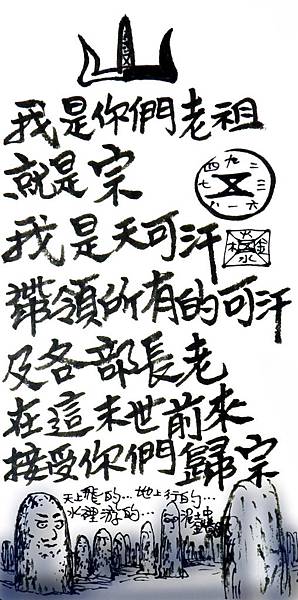 山
我是你們老祖
就是宗
四九二
七五三
八一六
我是天可汗
火
木 金
水
帶領所有的可汗
及各部長老
在這末世前來
接受你們歸宗
天上飛的…地上行的…
水裡游的…